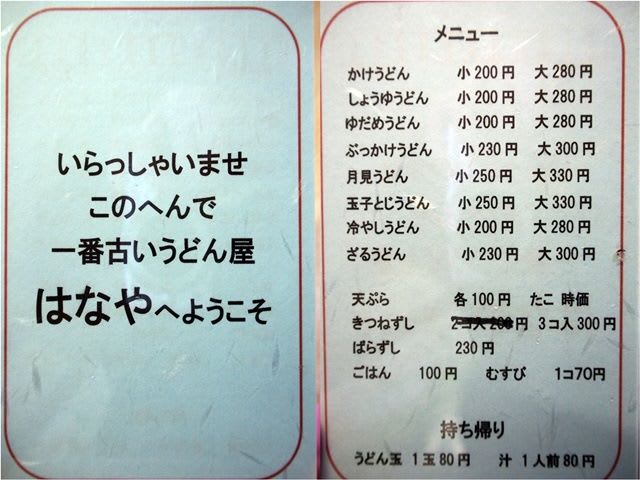 いらっしゃいませ
このへんで
一番古いうどん屋
はなやへようこそ
メニュー
かけうどん 小200円 大280円
しょうゆうどん 小200円 大280円
ゆだめうどん 小200円 大280円
ぶっかけうどん 小230円 大300円
月見うどん 小250円 大330円
玉子とじうどん 小250円 大330円
冷やしうどん 小200円 大280円
ざるうどん 小230円 大300円
天ぷら 各100円 たこ 時価
きつねずし 2コ入200円 3コ入300円
ばらずし 230円
ごはん 100円 むすび 1コ70円
持ち帰り
うどん玉 1玉80円 汁 1人前80円